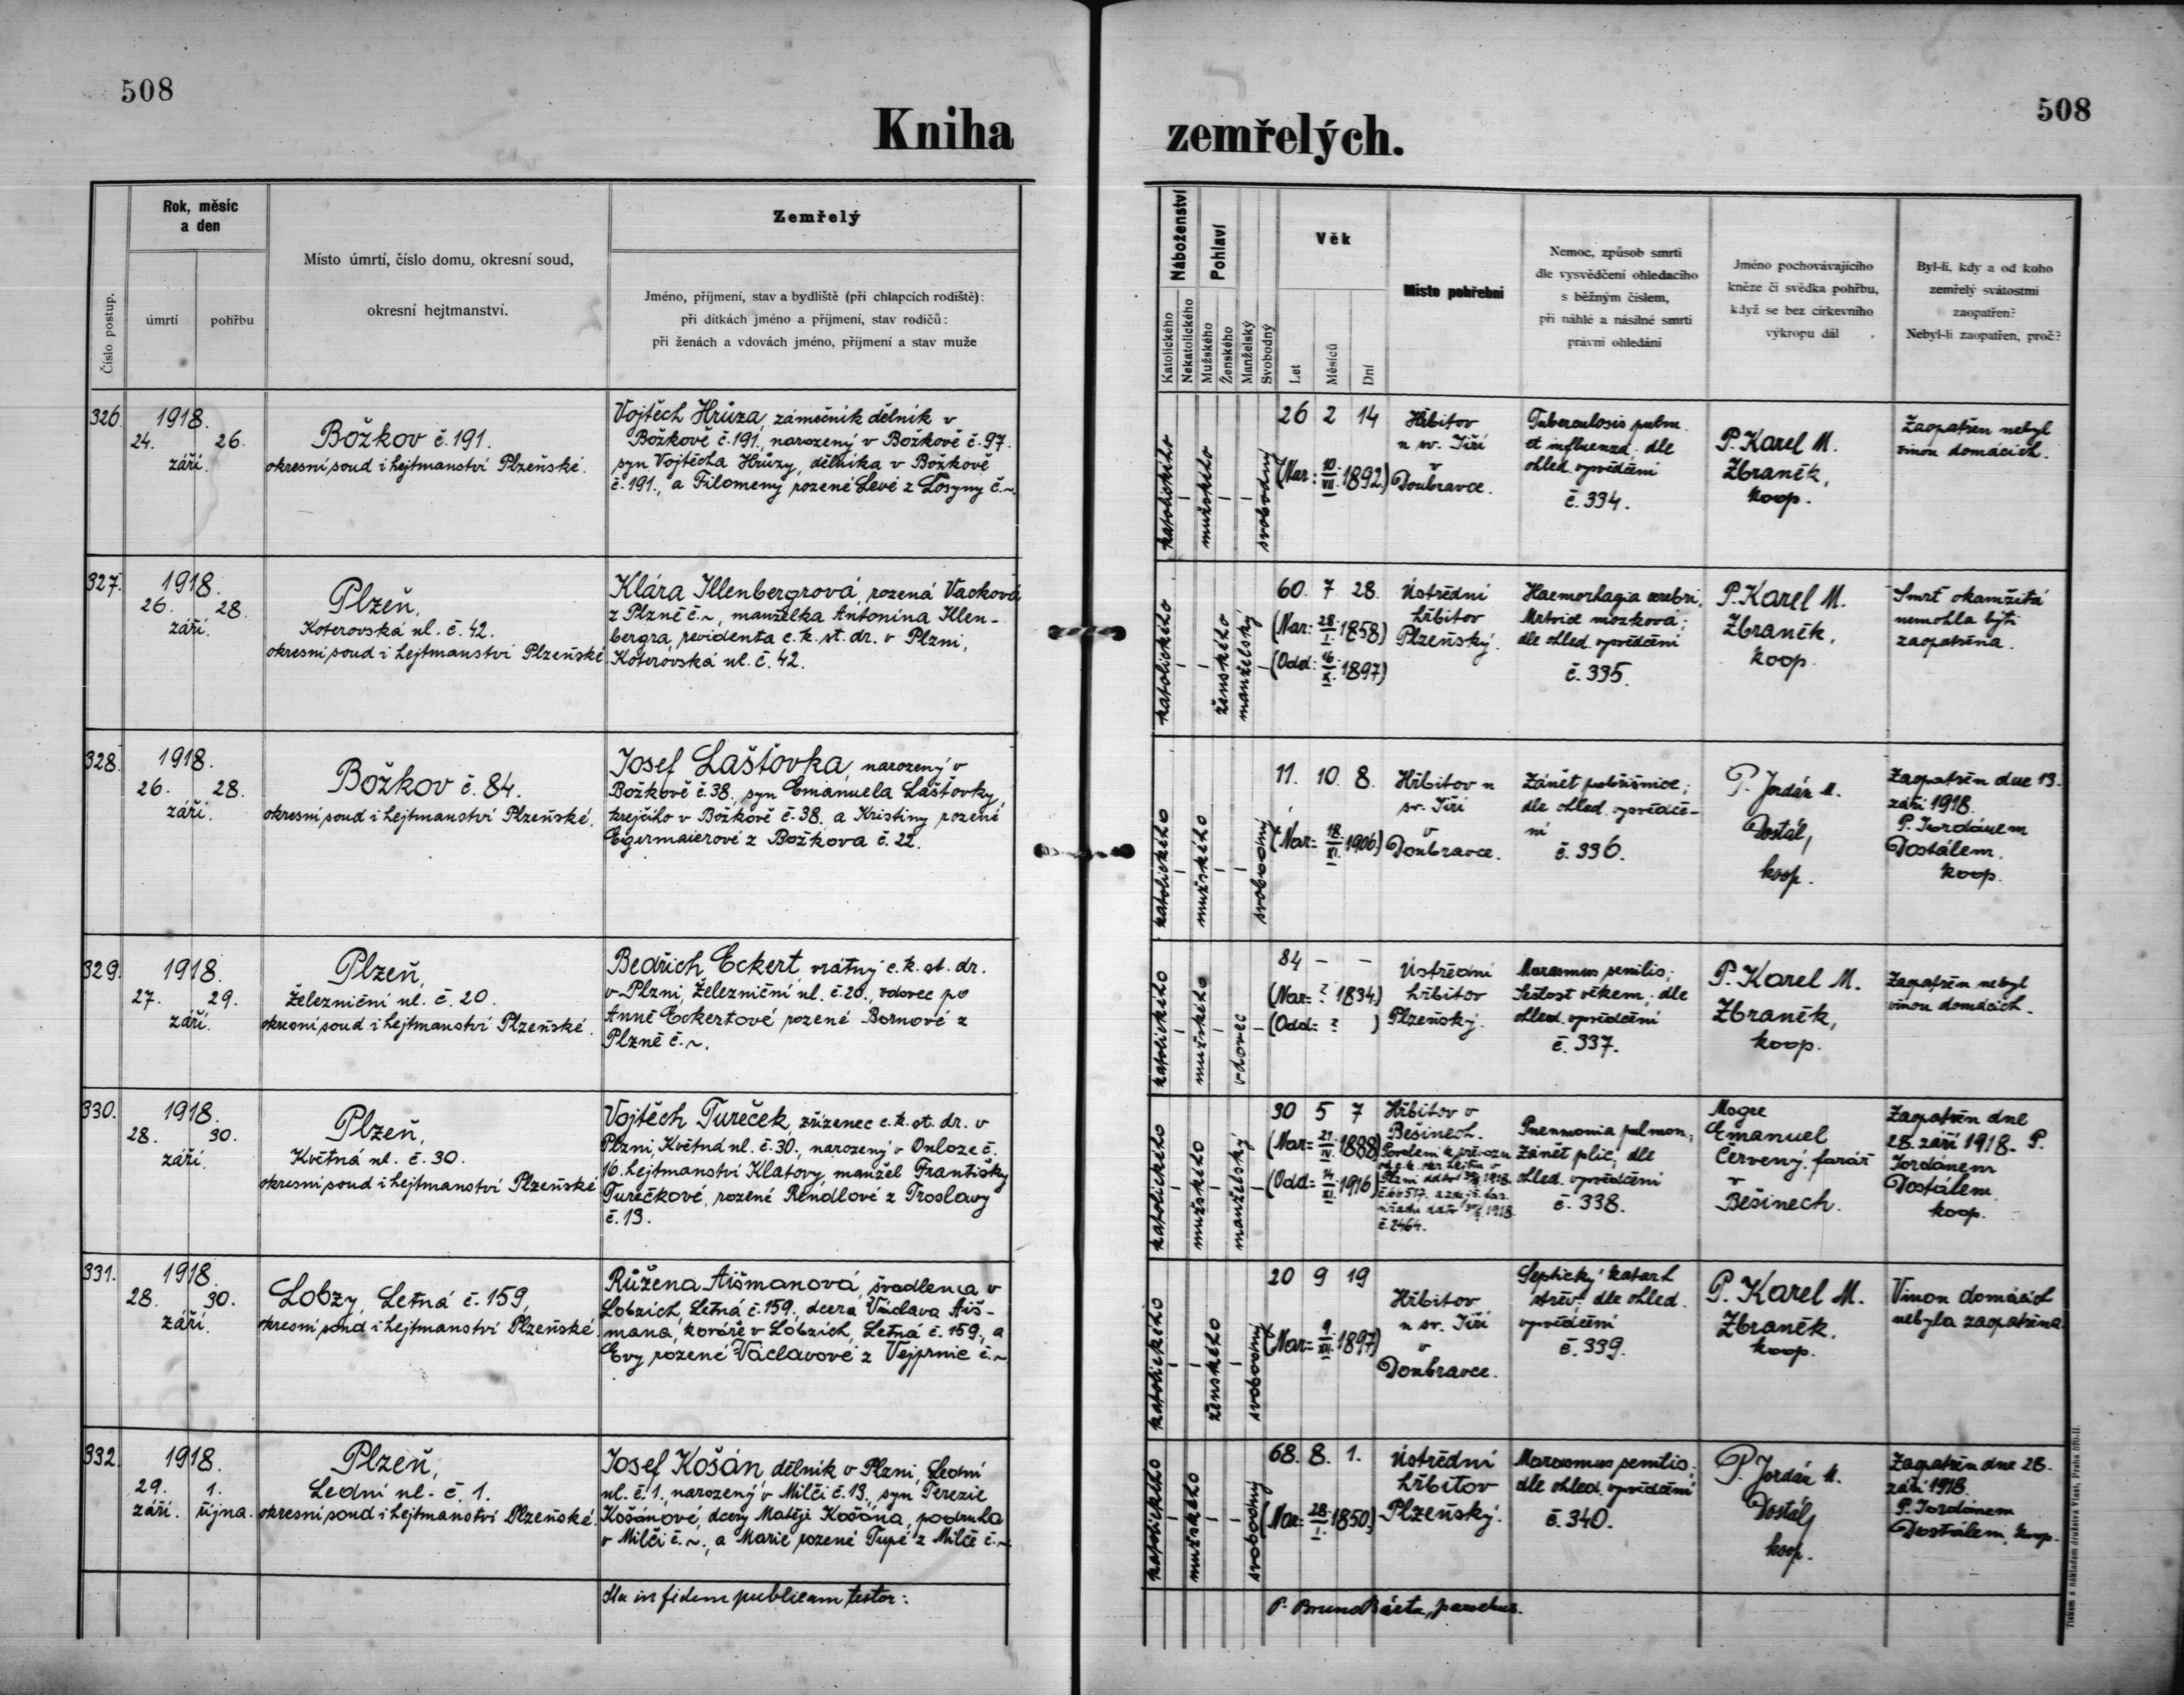 508
508
Kniha zemřelých.
Číslo postup.
Rok, měsíc
a den
úmrtí
pohřbu
Místo úmrtí, číslo domu, okresní soud,
okresní hejtmanství.
Zemřelý
Jméno, příjmení, stav a bydliště (při chlapcích rodiště):
při dítkách jméno a příjmení, stav rodičů:
při ženách a vdovách jméno, příjmení a stav muže
Náboženství
Katolického
Nekatolického
Pohlaví
Mužského
Ženského
Manželský
Svobodný
Věk
Let
Měsíců
Dní
Místo pohřební
Nemoc, způsob smrti
dle vysvědčení ohledacího
s běžným číslem,
při náhlé a násilné smrti
právní ohledání
Jméno pochovávajícího
kněze či svědka pohřbu,
když se bez církevního
výkropu dál
Byl-li, kdy a od koho
zemřelý svátostmi
zaopatřen?
Nebyl-li zaopatřen, proč?
326.
1918.
24. 26.
září.
Božkov č. 191.
okresní soud i hejtmanství Plzeňské.
Vojtěch Hrůza, zámečník dělník v
Božkově č. 191., narozený v Božkově č. 97.
syn Vojtěcha Hrůzy, dělníka v Božkově
č. 191., a Filomeny rozené Levé z Losyny č.~.
katolického
mužského
svobodný
26 2 14
(Nar: 10/VII. 1892.)
Hřbitov
u sv. Jiří
v
Doubravce.
Tuberculosis pulm.
et influenza; dle
ohled. vysvědčení
č. 334.
P. Karel M.
Zbraněk,
koop.
Zaopatřen nebyl
vinou domácích.
327.
1918.
26. 28.
září.
Plzeň,
Koterovská ul. č. 42.
okresní soud i hejtmanství Plzeňské
Klára Illenbergrová, rozená Vacková
z Plzně č.~, manželka Antonína Illen-
bergra, revidenta c. k. st. dr. v Plzni,
Koterovská ul. č. 42.
katolického
ženského
manželský
60. 7 28.
(Nar: 28/I. 1858)
(Odd: 16/XI. 1897)
Ústřední
hřbitov
Plzeňský.
Haemorhagia cerebri,
Mrtvice mozková;
dle ohled. vysvědčení
č. 335.
P. Karel M.
Zbraněk,
koop.
Smrť okamžitá
nemohla býti
zaopatřena.
328.
1918.
26. 28.
září.
Božkov č. 84.
okresní soud i hejtmanství Plzeňské.
Josef Lašťovka, narozený v
Božkově č. 38., syn Emanuela Lašťovky,
krejčího v Božkově č. 38. a Kristiny rozené
Egermaierové z Božkova č. 22.
katolického
mužského
svobodný
11. 10. 8.
(Nar: 18/XI. 1906)
Hřbitov u
sv. Jiří
v
Doubravce.
Zánět pobřišnice;
dle ohled. vysvědče-
ní
č. 336.
P. Jordán M.
Dostál,
koop.
Zaopatřen dne 13.
září 1918.
P. Jordánem
Dostálem.
koop.
329.
1918.
27. 29.
září.
Plzeň,
Železniční ul. č. 20.
okresní soud i hejtmanství Plzeňské.
Bedřich Eckert, vrátný c. k. st. dr.
v Plzni, Železniční ul. č. 20., vdovec po
Anně Eckertové rozené Bornové z
Plzně č.~.
katolického
mužského
vdovec
84 – –
(Nar: ? 1834.)
(Odd: ? )
Ústřední
hřbitov
Plzeňský.
Marasmus senilis;
Sešlost věkem; dle
ohled. vysvědčení
č. 337.
P. Karel M.
Zbraněk,
koop.
Zaopatřen nebyl
vinou domácích.
330.
1918.
28. 30.
září.
Plzeň,
Květná ul. č. 30.
okresní soud i hejtmanství Plzeňské
Vojtěch Tureček, zřízenec c. k. st. dr. v
Plzni, Květná ul. č. 30., narozený v Onloze č.
16. hejtmanství Klatovy, manžel Františky
Turečkové, rozené Rendlové z Troslavy
č. 13.
katolického
mužského
manželský
30 5 7
(Nar: 21/IV. 1888)
(Odd: 14/XI. 1916)
Hřbitov v
Běšinech.
Povolení k převozu
Plzni 1918.
1918.
č. 2464.
Pneumonia pulmon.;
Zánět plic; dle
ohled. vysvědčení
č. 338.
Msgre
Emanuel
Červený, farář
v
Běšinech.
Zaopatřen dne
28. září 1918. P.
Jordánem
Dostálem
koop.
331.
1918.
28. 30.
září.
Lobzy, Letná č. 159,
okresní soud i hejtmanství Plzeňské
Růžena Aišmanová, švadlena v
Lobzích, Letná č. 159., dcera Václava Aiš-
mana, kováře v Lobzích, Letná č. 159., a
Evy rozené Václavové z Vejprnic č.~
katolického
ženského
svobodný
20 9 19
(Nar: 9/XII. 1897)
Hřbitov
u sv. Jiří
v
Doubravce.
Septický katarh
střev; dle ohled.
vysvědčení
č. 339.
P. Karel M.
Zbraněk,
koop.
Vinou domácích
nebyla zaopatřena.
332.
1918.
29. 1.
září. října.
Plzeň,
Lední ul. č. 1.
okresní soud i hejtmanství Plzeňské.
Josef Košán, dělník v Plzni, Lední
ul. č. 1., narozený v Milči č. 13., syn Terezie
Košánové, dcery Matěje Košána, podruha
v Milči č.~., a Marie rozené Tupé z Milče č.~
katolického
mužského
svobodný
68. 8. 1.
(Nar: 28/I. 1850.)
Ústřední
hřbitov
Plzeňský.
Marasmus senilis;
dle ohled. vysvědčení
č. 340.
P. Jordán M.
Dostál,
koop.
Zaopatřen dne 28.
září 1918.
P. Jordánem
Dostálem, koop.
Ita in fidem publicam testor:
P. Bruno Bárta, parochus.